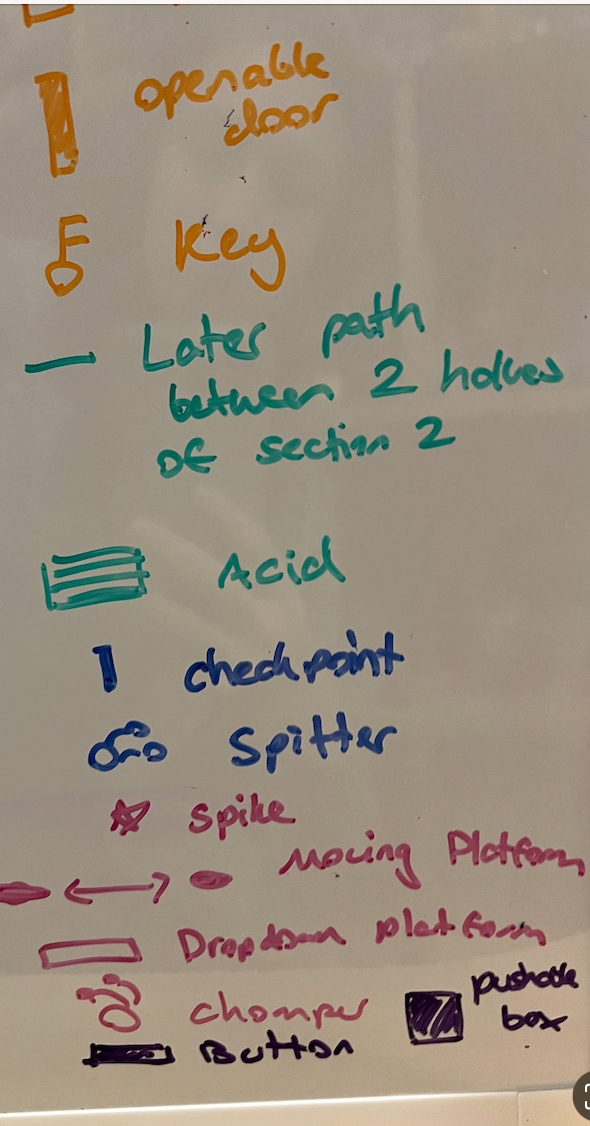 openable
door
Key
Later path
between 2 halves
of section 2
Acid
checkpoint
Spitter
Spike
Moving Platform
Dropdown platform
chomper
pushable
box
Button